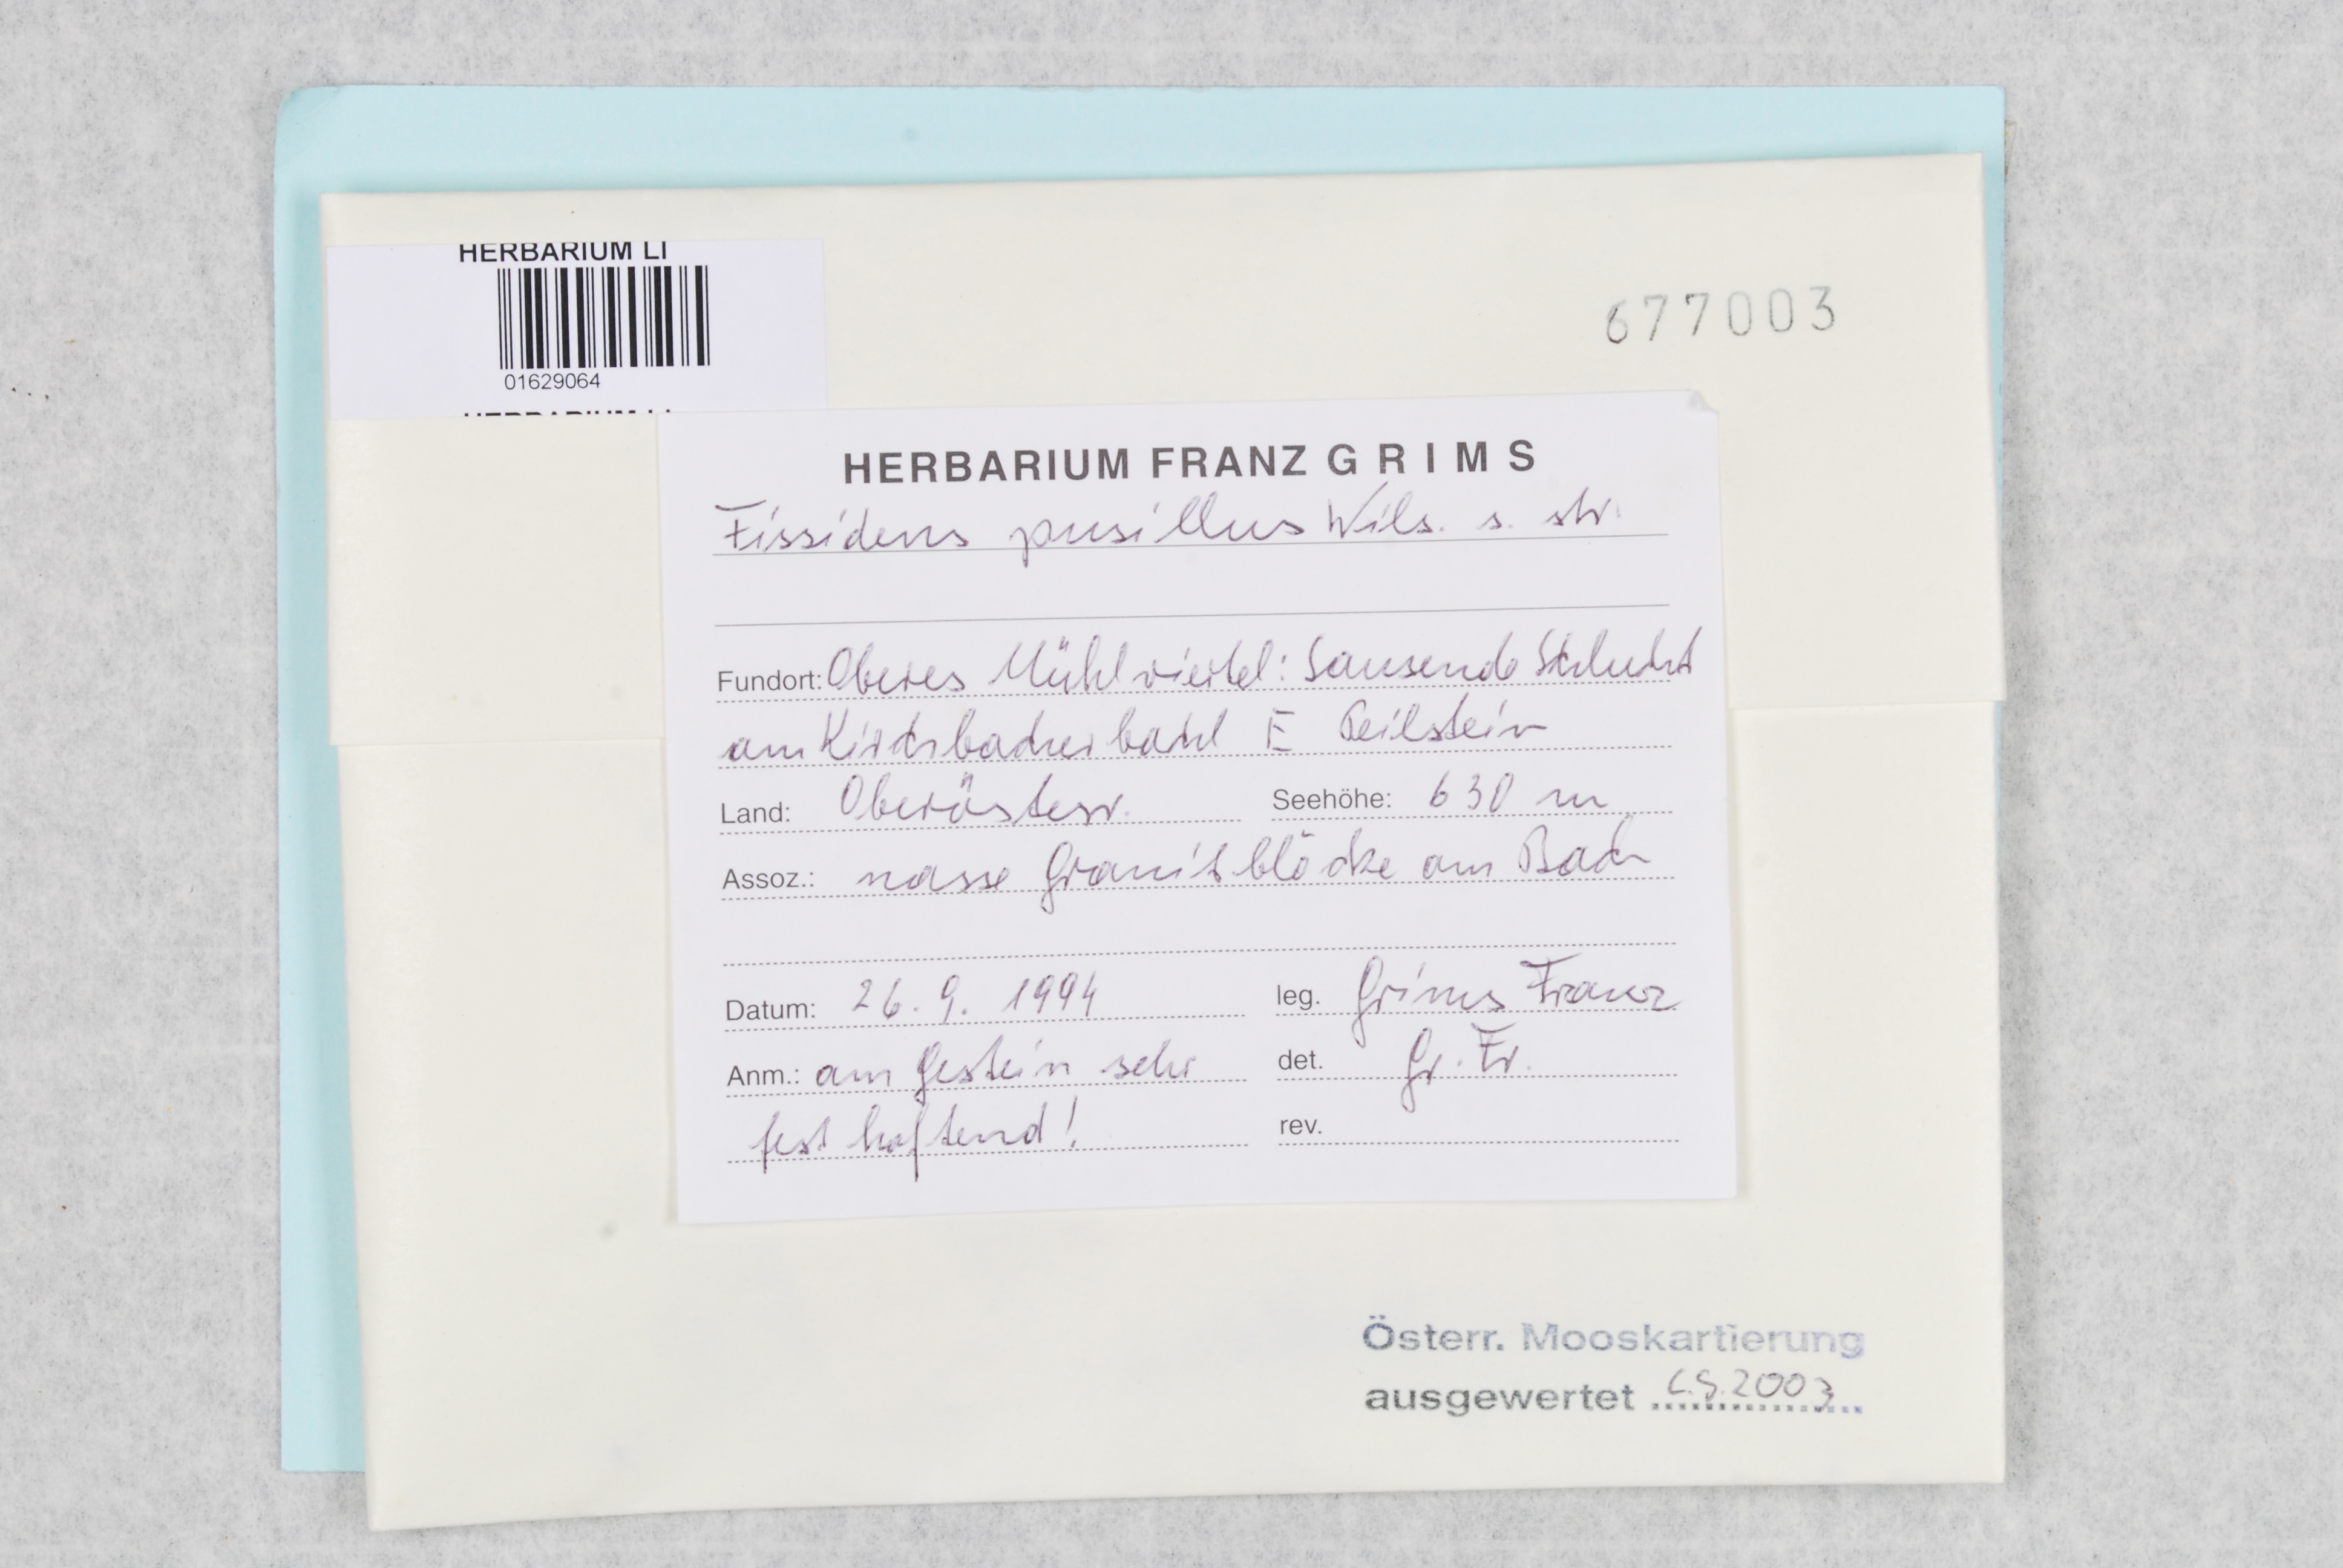 HERBARIUM LI
01629064
677003
HERBARIUM FRANZ GRIMS
Fissidens pusillus Wils. s. str.
Fundort: Oberes Mühlviertel: Sausende Schlucht
am Kirchbacherbachl E Peilstein
Land: Oberösterr. Seehöhe: 630 m
Assoz.: nasse Granitblöcke am Bach
Datum: 26. 9. 1994 leg. Grims Franz
Anm.: am Gestein sehr det. Gr. Fr.
fest haftend! rev.
Österr. Mooskartierung
ausgewertet 2003